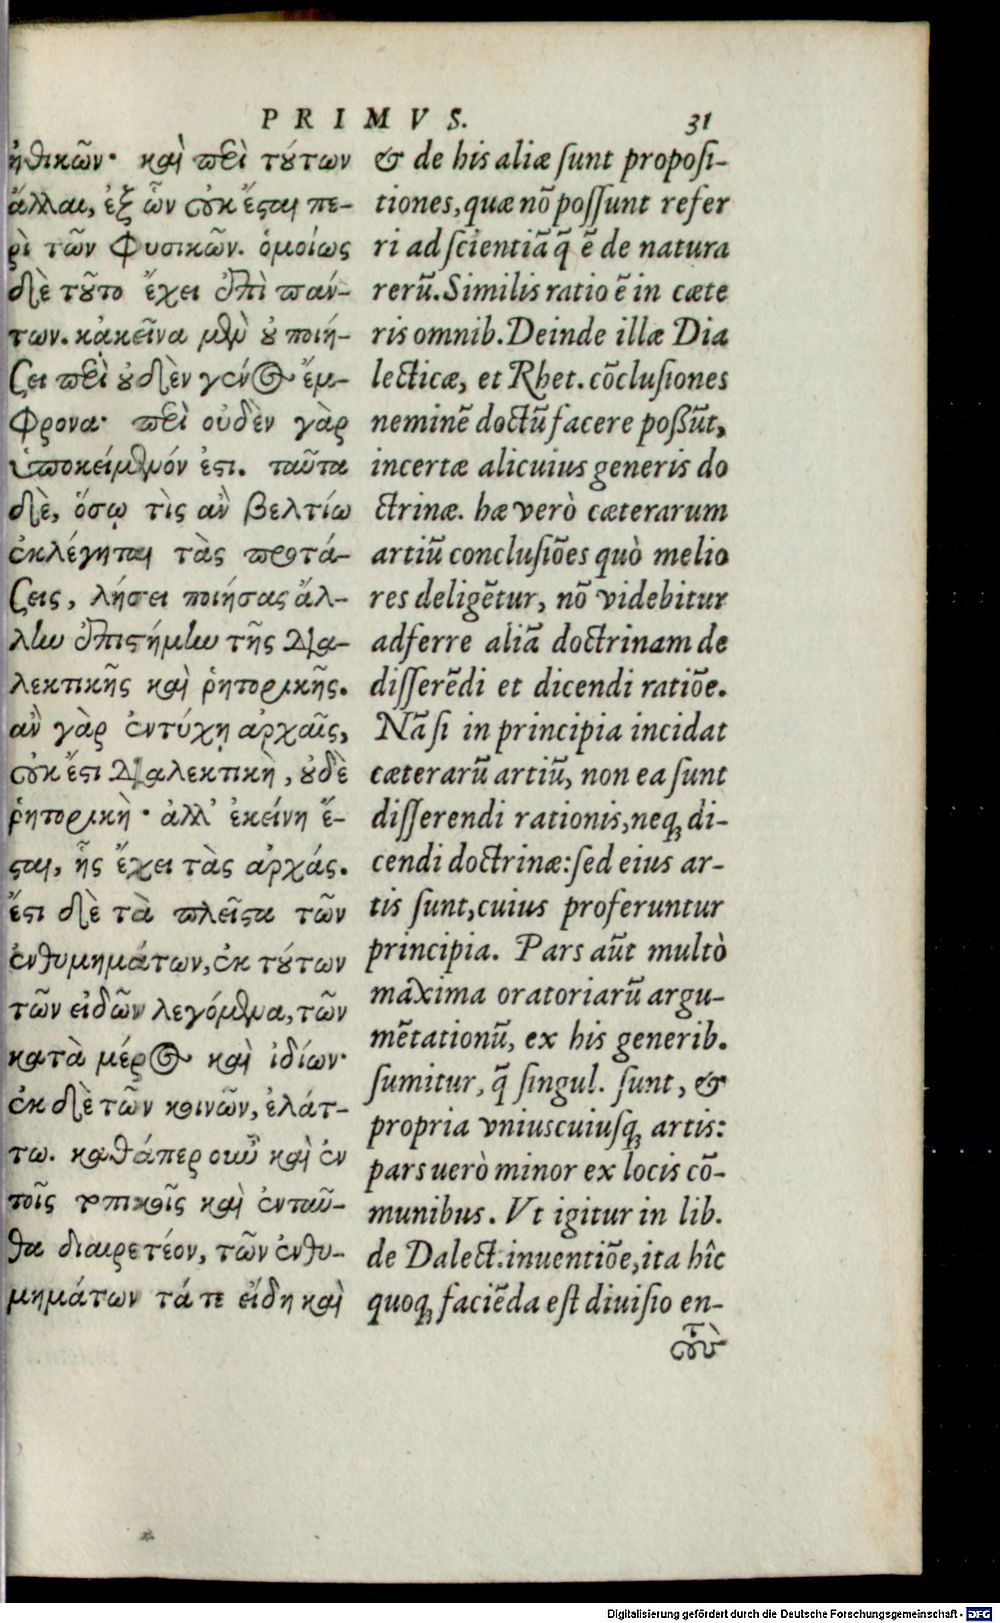 PRIMVS. 31
ἠθικῶν· καὶ περὶ τούτων
ἄλλαι, ἐξ ὧν οὐκ ἔσται πε-
ρὶ τῶν φυσικῶν. ὁμοίως
δὲ τοῦτο ἔχει ἐπὶ πάν-
των. κἀκεῖνα μὲν οὐ ποιή-
σει περὶ οὐδὲν γένος ἔμ-
φρονα· περὶ οὐδὲν γὰρ
ὑποκείμενόν ἐστι. ταῦτα
δὲ, ὅσῳ τὶς ἂν βελτίω
ἐκλέγηται τὰς προτά-
σεις, λήσει ποιήσας ἄλ-
λην ἐπιστήμην τῆς Δια-
λεκτικῆς καὶ ῥητορικῆς.
ἂν γὰρ ἐντύχῃ ἀρχαῖς,
οὐκ ἔστι Διαλεκτικὴ, οὐδὲ
ῥητορικὴ· ἀλλ' ἐκείνη ἔ-
σται, ἧς ἔχει τὰς ἀρχάς.
ἔστι δὲ τὰ πλεῖστα τῶν
ἐνθυμημάτων, ἐκ τούτων
τῶν εἰδῶν λεγόμενα, τῶν
κατὰ μέρος καὶ ἰδίων·
ἐκ δὲ τῶν κοινῶν, ἐλάτ-
τω. καθάπερ οὖν καὶ ἐν
τοῖς τοπικοῖς καὶ ἐνταῦ-
θα διαιρετέον, τῶν ἐνθυ-
μημάτων τά τε εἴδη καὶ
& de his aliæ sunt proposi-
tiones, quæ nõ possunt refer
ri ad scientiã q̃ ẽ de natura
rerũ. Similis ratio ẽ in cæte
ris omnib. Deinde illæ Dia
lecticæ, et Rhet. cõclusiones
neminẽ doctũ facere possũt,
incertæ alicuius generis do
ctrinæ. hæ verò cæterarum
artiũ conclusiões quò melio
res deligẽtur, nõ videbitur
adferre aliã doctrinam de
disserẽdi et dicendi ratiõe.
Nã si in principia incidat
cæterarũ artiũ, non ea sunt
disserendi rationis, neq; di-
cendi doctrinæ: sed eius ar-
tis sunt, cuius proferuntur
principia. Pars aũt multò
maxima oratoriarũ argu-
mẽtationũ, ex his generib.
sumitur, q̃ singul. sunt, &
propria vniuscuiusq; artis:
pars uerò minor ex locis cõ-
munibus. Vt igitur in lib.
de Dalect. inuentiõe, ita hîc
quoq; faciẽda est diuisio en-
τοὺ
Digitalisierung gefördert durch die Deutsche Forschungsgemeinschaft - DFG